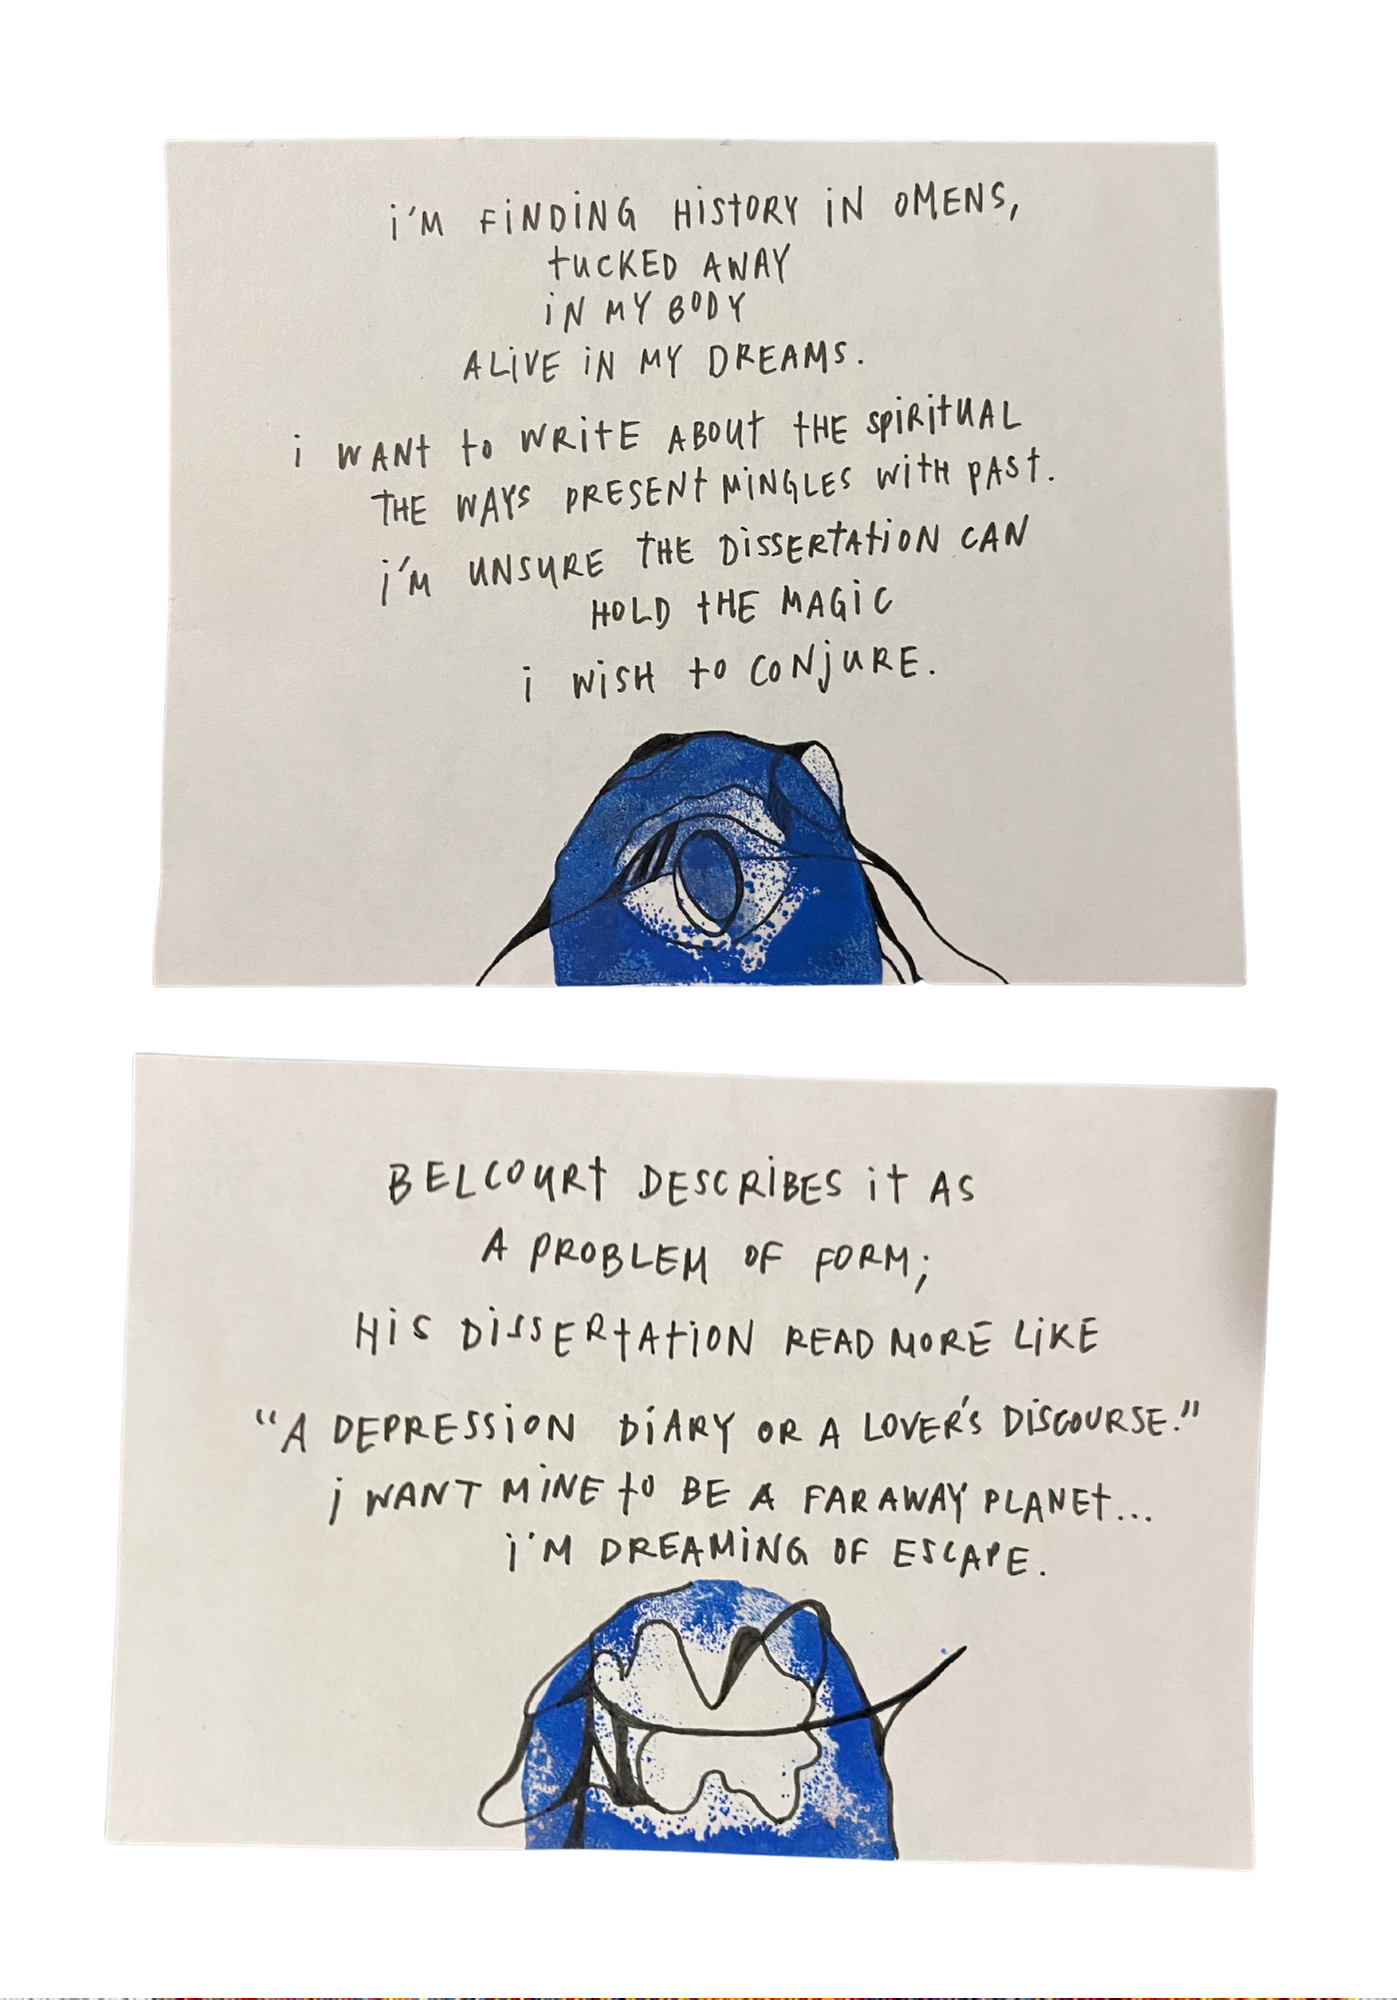 i'M FiNDiNG HiSTORY iN OMENS,
tUCKED AWAY
iN MY BODY
ALiVE iN MY DREAMS.
i WANt to WRitE ABOUt tHE SPiRitUAL
THE WAYS PRESENt MiNGLES WitH PASt.
i'M UNSURE THE DiSSERtAtiON CAN
HOLD tHE MAGiC
i WiSH to CONjURE.
BELCOURt DESCRiBES it AS
A PROBLEM OF FORM;
HiS DiSSERtAtiON READ MORE LiKE
"A DEPRESSiON DiARY OR A LOVER'S DiSCOURSE."
i WANT MiNE to BE A FARAWAY PLANEt...
i'M DREAMiNG OF ESCAPE.